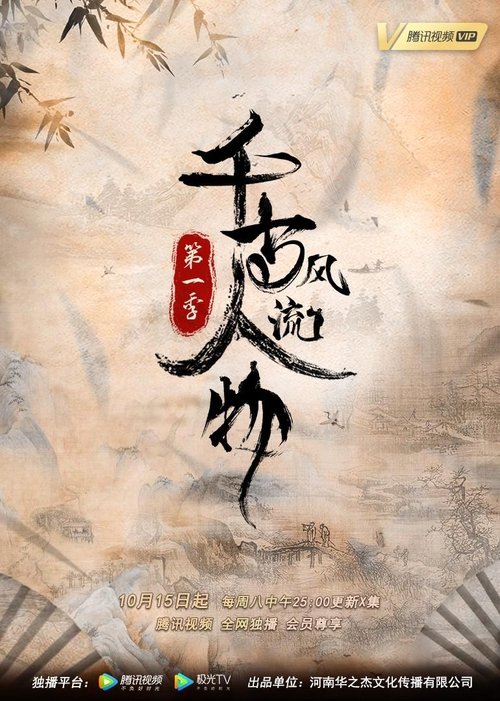 腾讯视频 VIP
千古风流人物
第一季
10月15日起 每周八中午25:00更新X集
腾讯视频 全网独播 会员尊享
独播平台: 腾讯视频 不负好时光 极光TV 出品单位: 河南华之杰文化传播有限公司